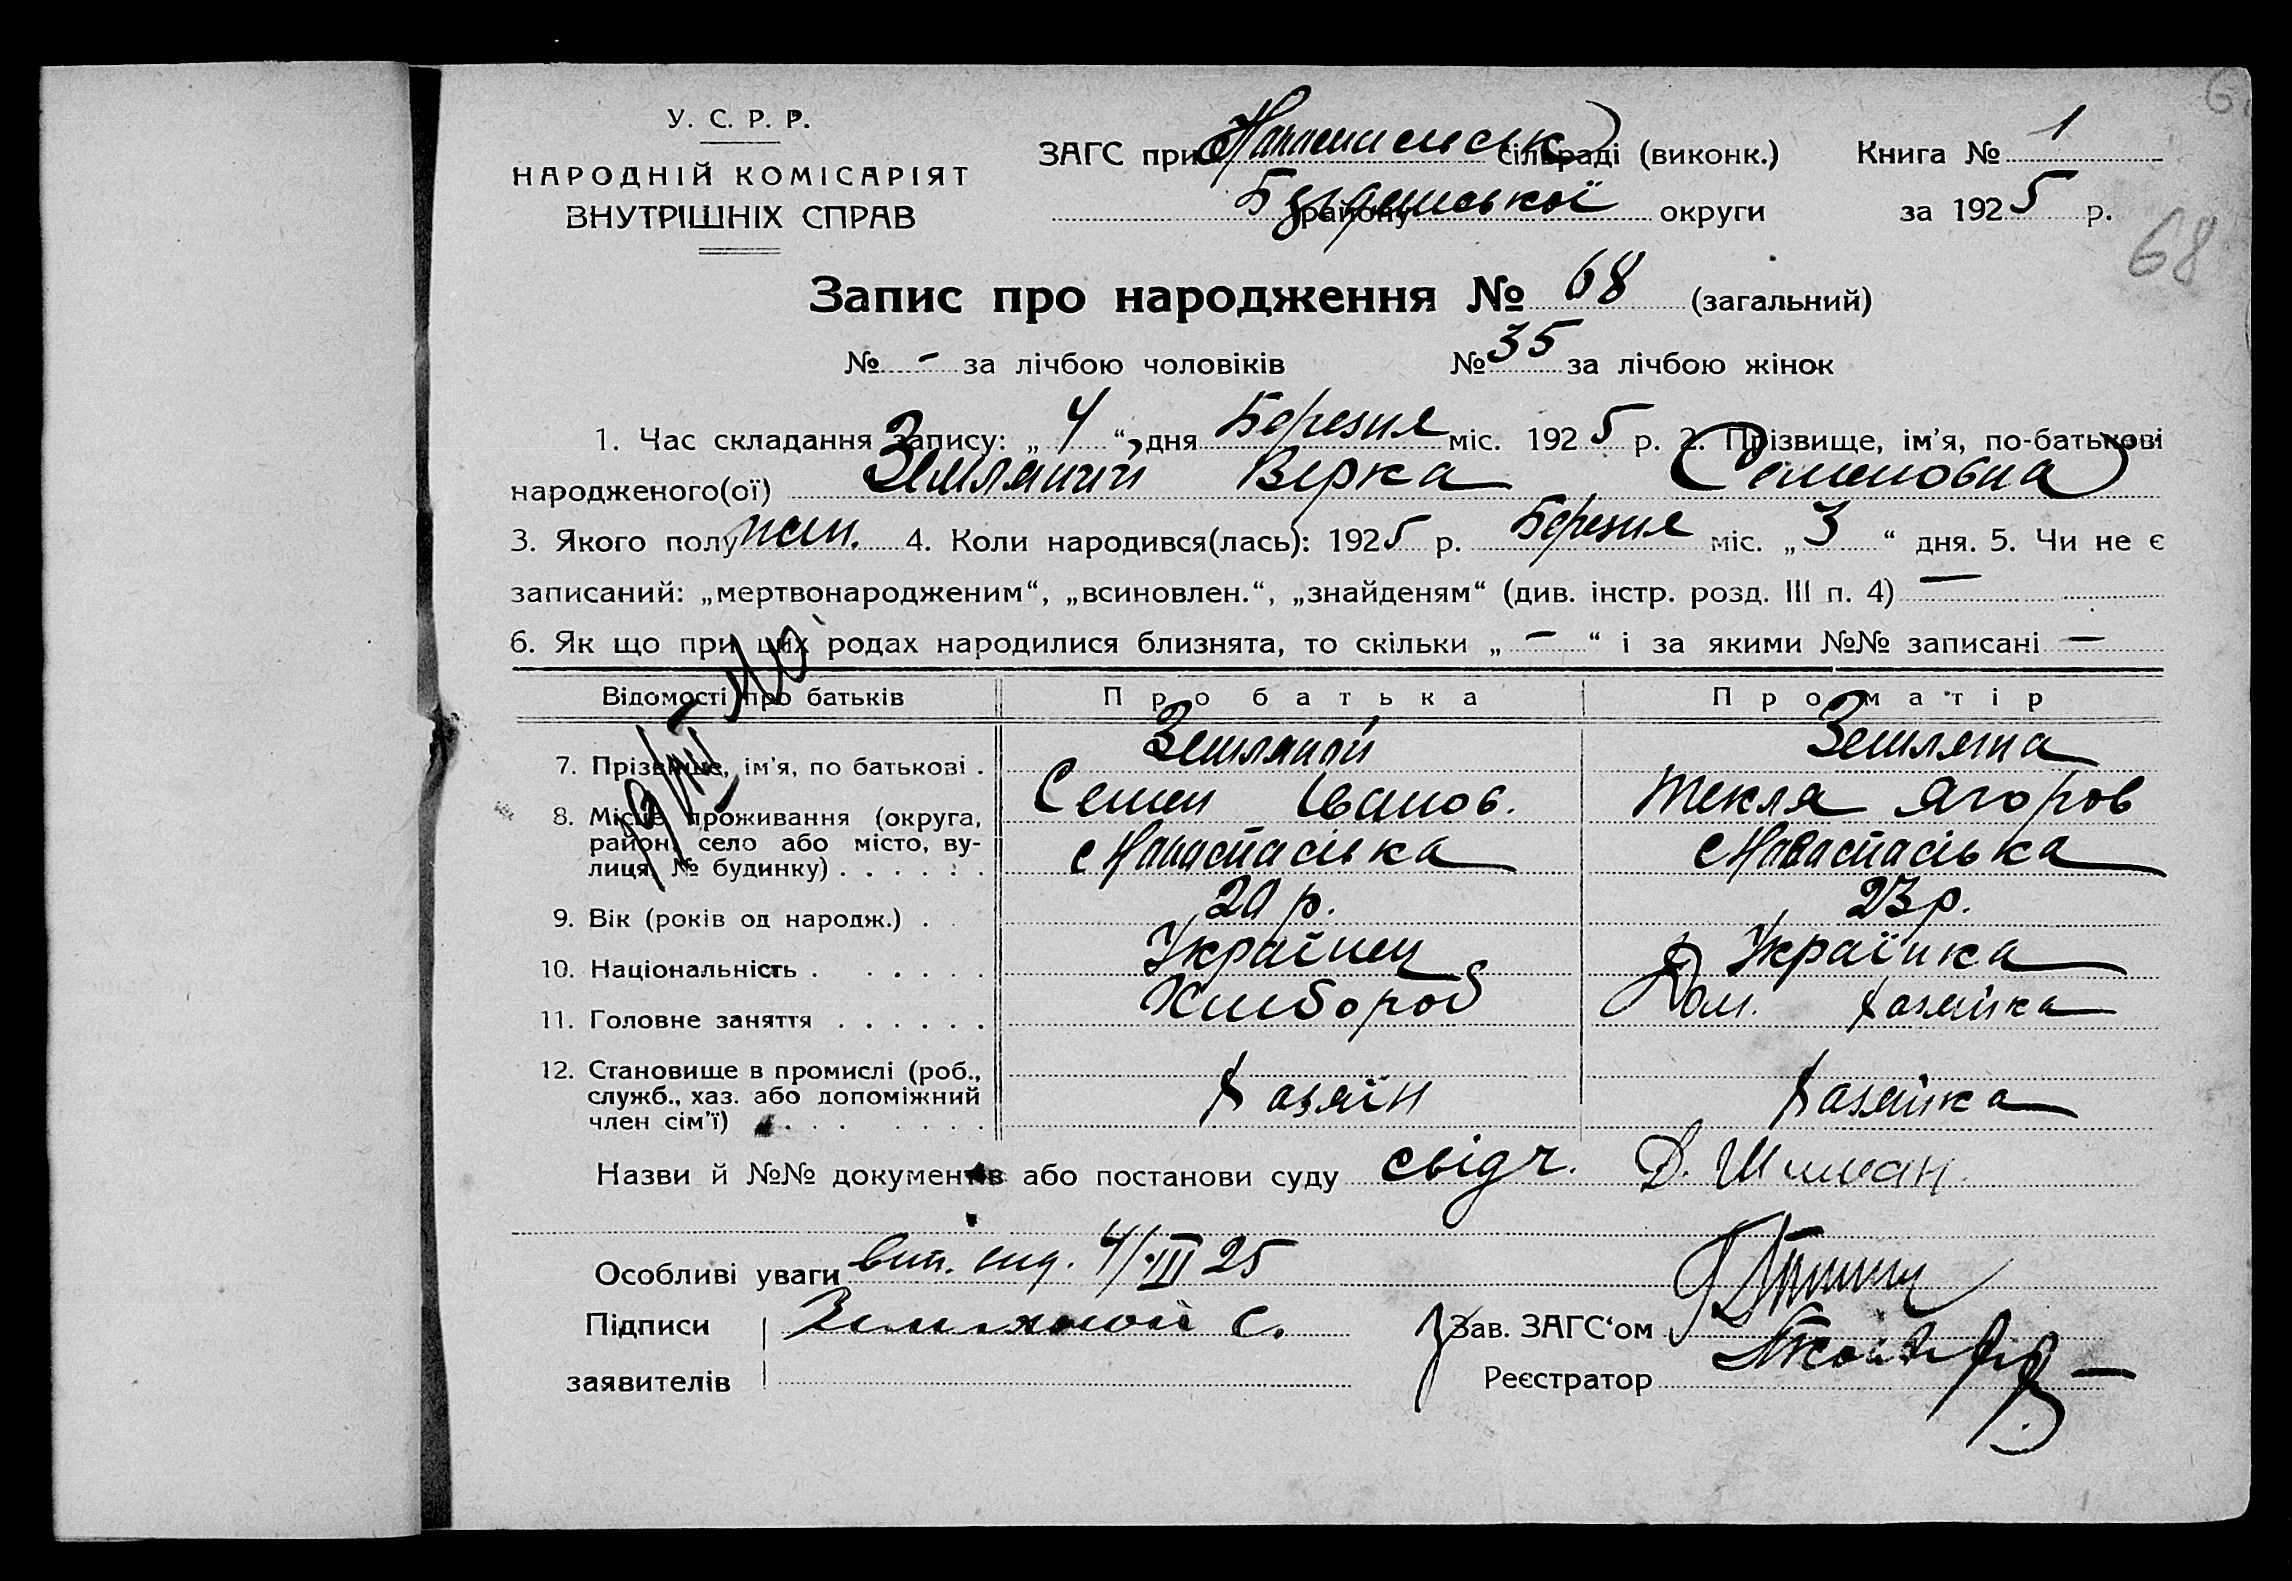 У. С. Р. Р.
НАРОДНІЙ КОМІСАРІЯТ
ВНУТРІШНІХ СПРАВ
ЗАГС при сільраді (виконк.) Книга № 1
району округи за 1925 р.
68
Запис про народження № 68 (загальний)
№ - за лічбою чоловіків № 35 за лічбою жінок
1. Час складання запису: „ 4 “ дня Березня міс. 1925 р. 2. Прізвище, ім’я, по-батькові
народженого(ої) Земляний Вірка Семеновна
3. Якого полу жен. 4. Коли народився(лась): 1925 р. Березня міс. „ 3 “ дня. 5. Чи не є
записаний: „мертвонародженим“, „всиновлен.“, „знайденям“ (див. інстр. розд. III п. 4) —
6. Як що при цих родах народилися близнята, то скільки „ — “ і за якими №№ записані —
Відомості про батьків Про батька Про матір
7. Прізвище, ім’я, по батькові . Земляной Земляна
Семен Іванов. Текля Ягоров
8. Місце проживання (округа, район, село або місто, ву-лиця, № будинку) . . . . . .
9. Вік (років од народж.) . 23 р.
10. Національність . . . . . . Українец Українка
11. Головне заняття . . . . . . Хлибороб Дом. хазяйка
12. Становище в промислі (роб., служб., хаз. або допоміжний член сім’ї) . . . . Хазяїн Хазяйка
Назви й №№ документів або постанови суду свідч.
Особливі уваги вип. вид. 4/III 25
Підписи Земляной С. Зав. ЗАГС‘ом
заявителів Реєстратор